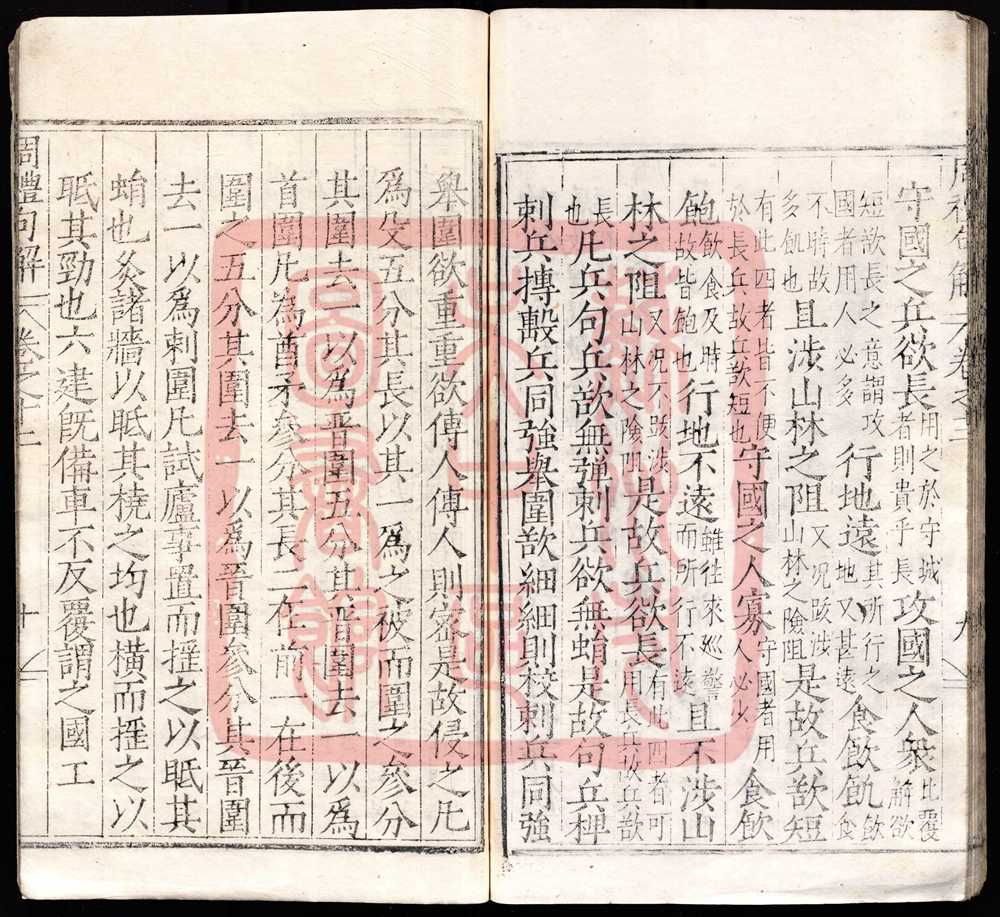 守國之兵欲長用之於守城者則貴乎長攻國之人衆此覆解欲
短欲長之意謂攻國者用人必多行地遠其所行之地又甚遠食飲飢飲食
不時故多飢也且涉山林之阻又况跋涉山林之險阻是故兵欲短
有此四者皆不便於長兵故兵欲短也守國之人寡守國者用人必少食飲
飽飲食及時故皆飽也行地不遠雖往來巡警而所行不遠且不涉山
林之阻又况不跋涉山林之險阻是故兵欲長有此四者可用長兵故兵欲
長也凡兵句兵欲無彈刺兵欲無蜎是故句兵椑
刺兵摶毄兵同強舉圍欲細細則校刺兵同強
舉圍欲重重欲傅人傅人則密是故侵之凡
為殳五分其長以其一為之被而圍之參分
其圍去一以為晉圍五分其晉圍去一以為
首圍凡為酋矛參分其長二在前一在後而
圍之五分其圍去一以為晉圍參分其晉圍
去一以為刺圍凡試廬事置而搖之以眡其
蜎也灸諸牆以眡其橈之均也橫而搖之以
眡其勁也六建旣備車不反覆謂之國工
周禮句解 卷之十二 十